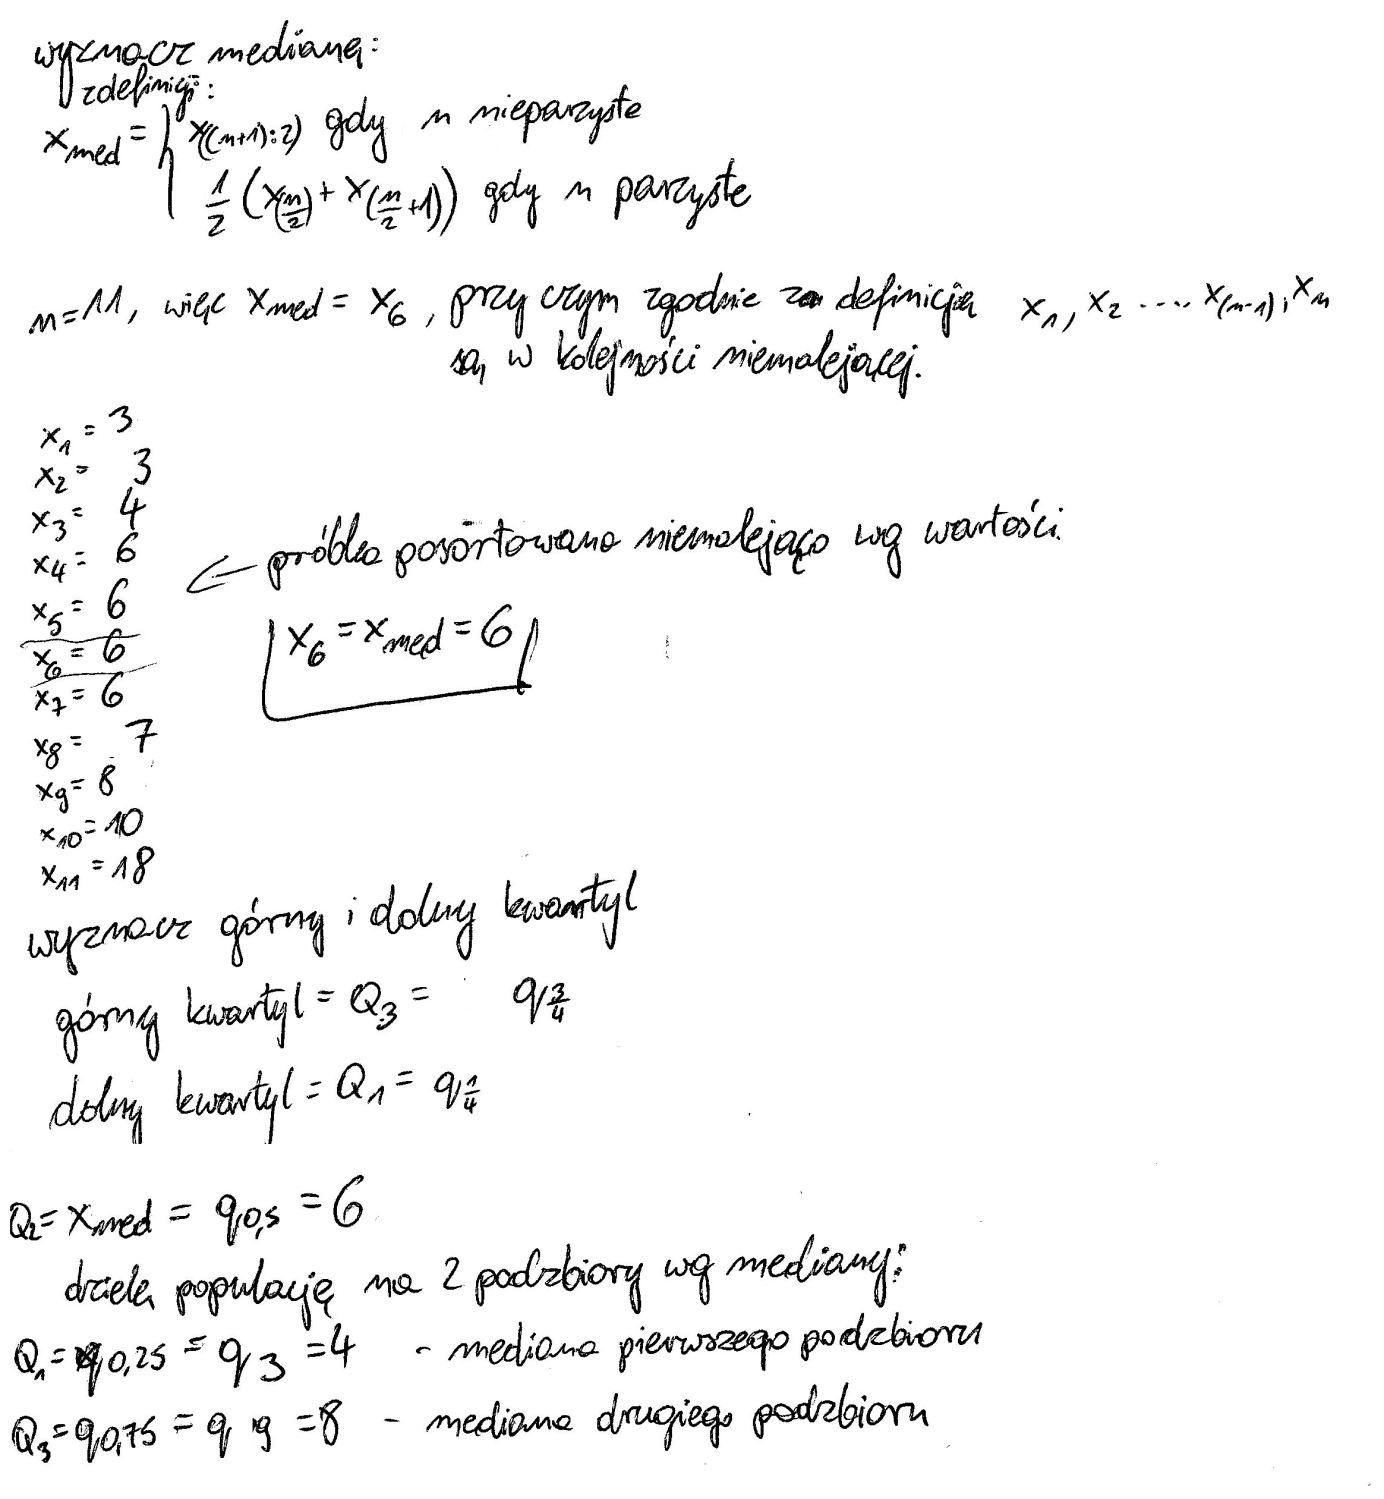 wyznacz medianę:
z definicji:
x_med = { x_((n+1):2) gdy n nieparzyste
1/2 (x_(n/2) + x_(n/2 +1)) gdy n parzyste
n=11, więc x_med = x_6, przy czym zgodnie za definicją x_1, x_2 .... x_(n-1), x_n
są w kolejności niemalejącej.
x_1 = 3
x_2 = 3
x_3 = 4
x_4 = 6
x_5 = 6
x_6 = 6
x_7 = 6
x_8 = 7
x_9 = 8
x_10 = 10
x_11 = 18
← próbka posortowana niemalejąco wg wartości.
x_6 = x_med = 6
wyznacz górny i dolny kwartyl
górny kwartyl = Q_3 = q_3/4
dolny kwartyl = Q_1 = q_1/4
Q_2 = x_med = q_0,5 = 6
dzielę populację na 2 podzbiory wg mediany:
Q_1 = q_0,25 = q_3 = 4 - mediana pierwszego podzbioru
Q_3 = q_0,75 = q_9 = 8 - mediana drugiego podzbioru